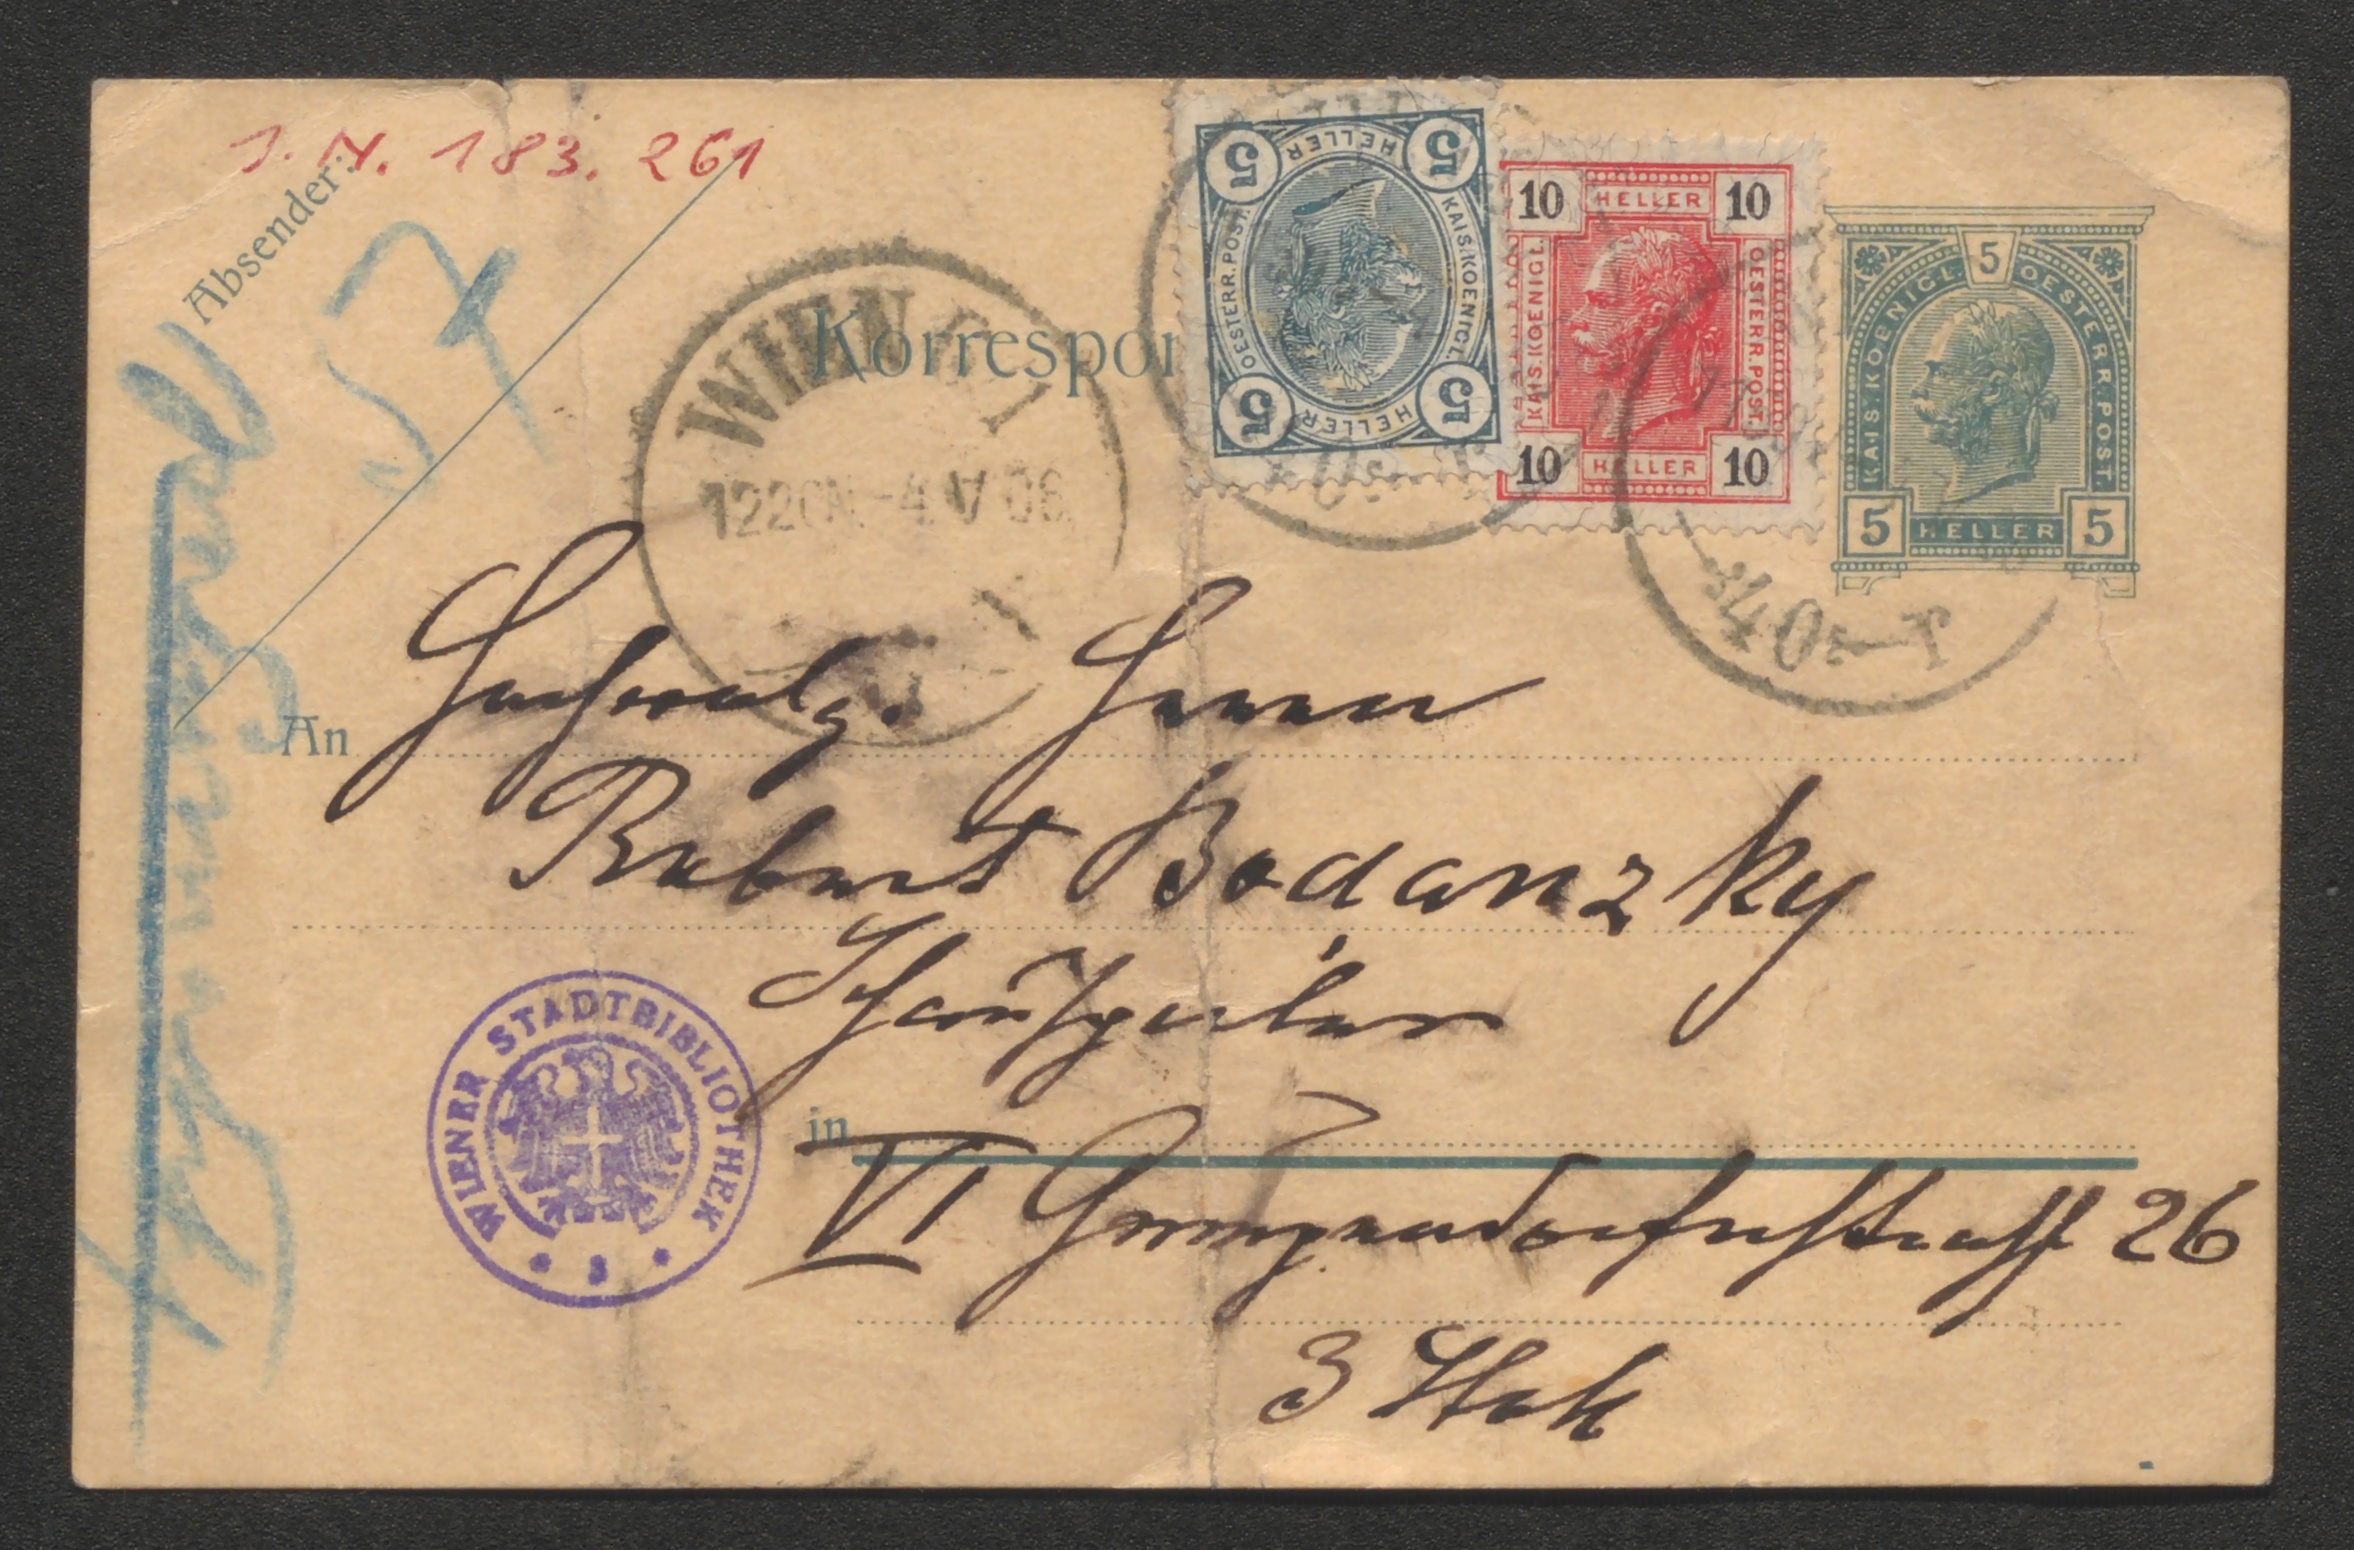 J. N. 183.261
Absender:
57
Korrespon
WIEN 1
1220N -4.IV 06
5 HELLER 5
KAIS. KOENIGL.
OESTERR. POST.
5 HELLER 5
10 HELLER 10
KAIS. KOENIGL.
OESTERR. POST.
10 HELLER 10
5
KAIS. KOENIGL. OESTERR. POST.
5 HELLER 5
An
Hochwolg. Herrn
Robert Bodanzky
Schriftsteller
WIENER STADTBIBLIOTHEK
in
VI Gumpendorferstrasse 26
3 Stock